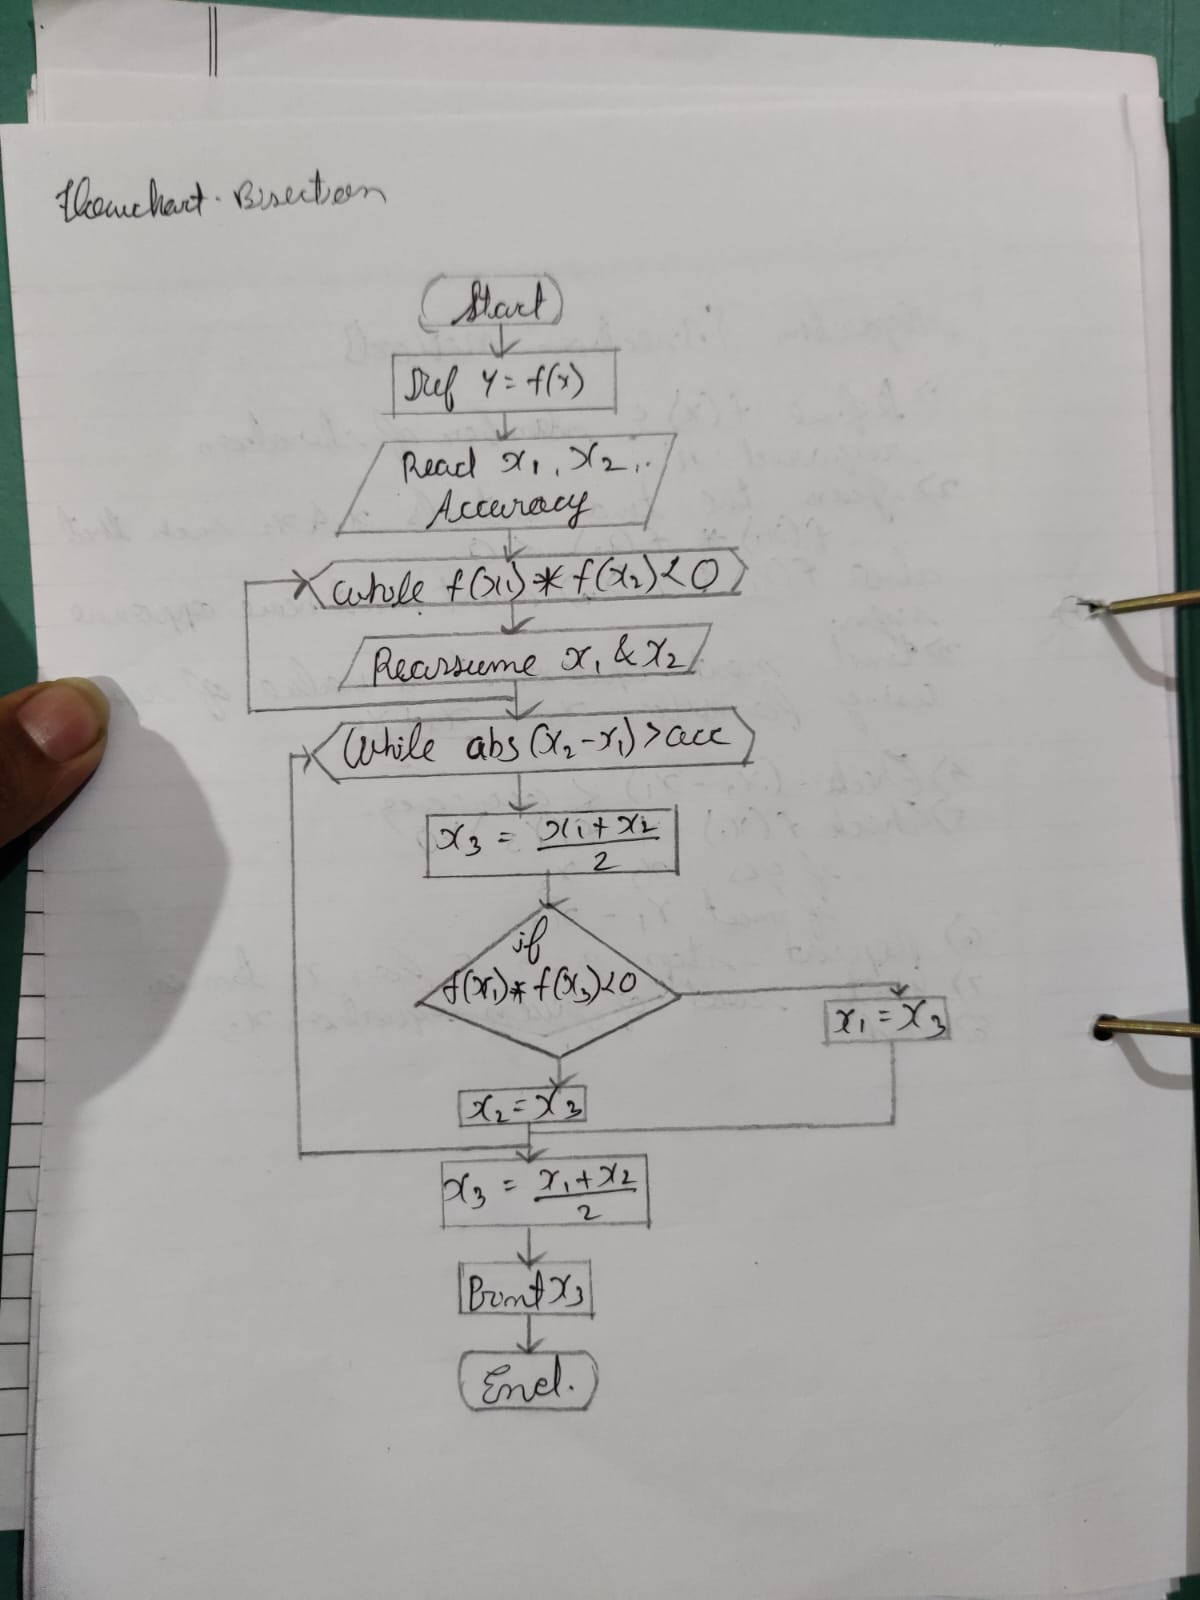 Flowchart. Bisection
Start
Def y = f(x)
Read x₁, x₂,
Accuracy
While f(x₁) * f(x₂) < 0
Reassume x₁ & x₂
While abs (x₂-x₁) > acc
x₃ = x₁ + x₂
2
if
f(x₁) * f(x₃) < 0
x₁ = x₃
x₂ = x₃
x₃ = x₁ + x₂
2
Print x₃
End.